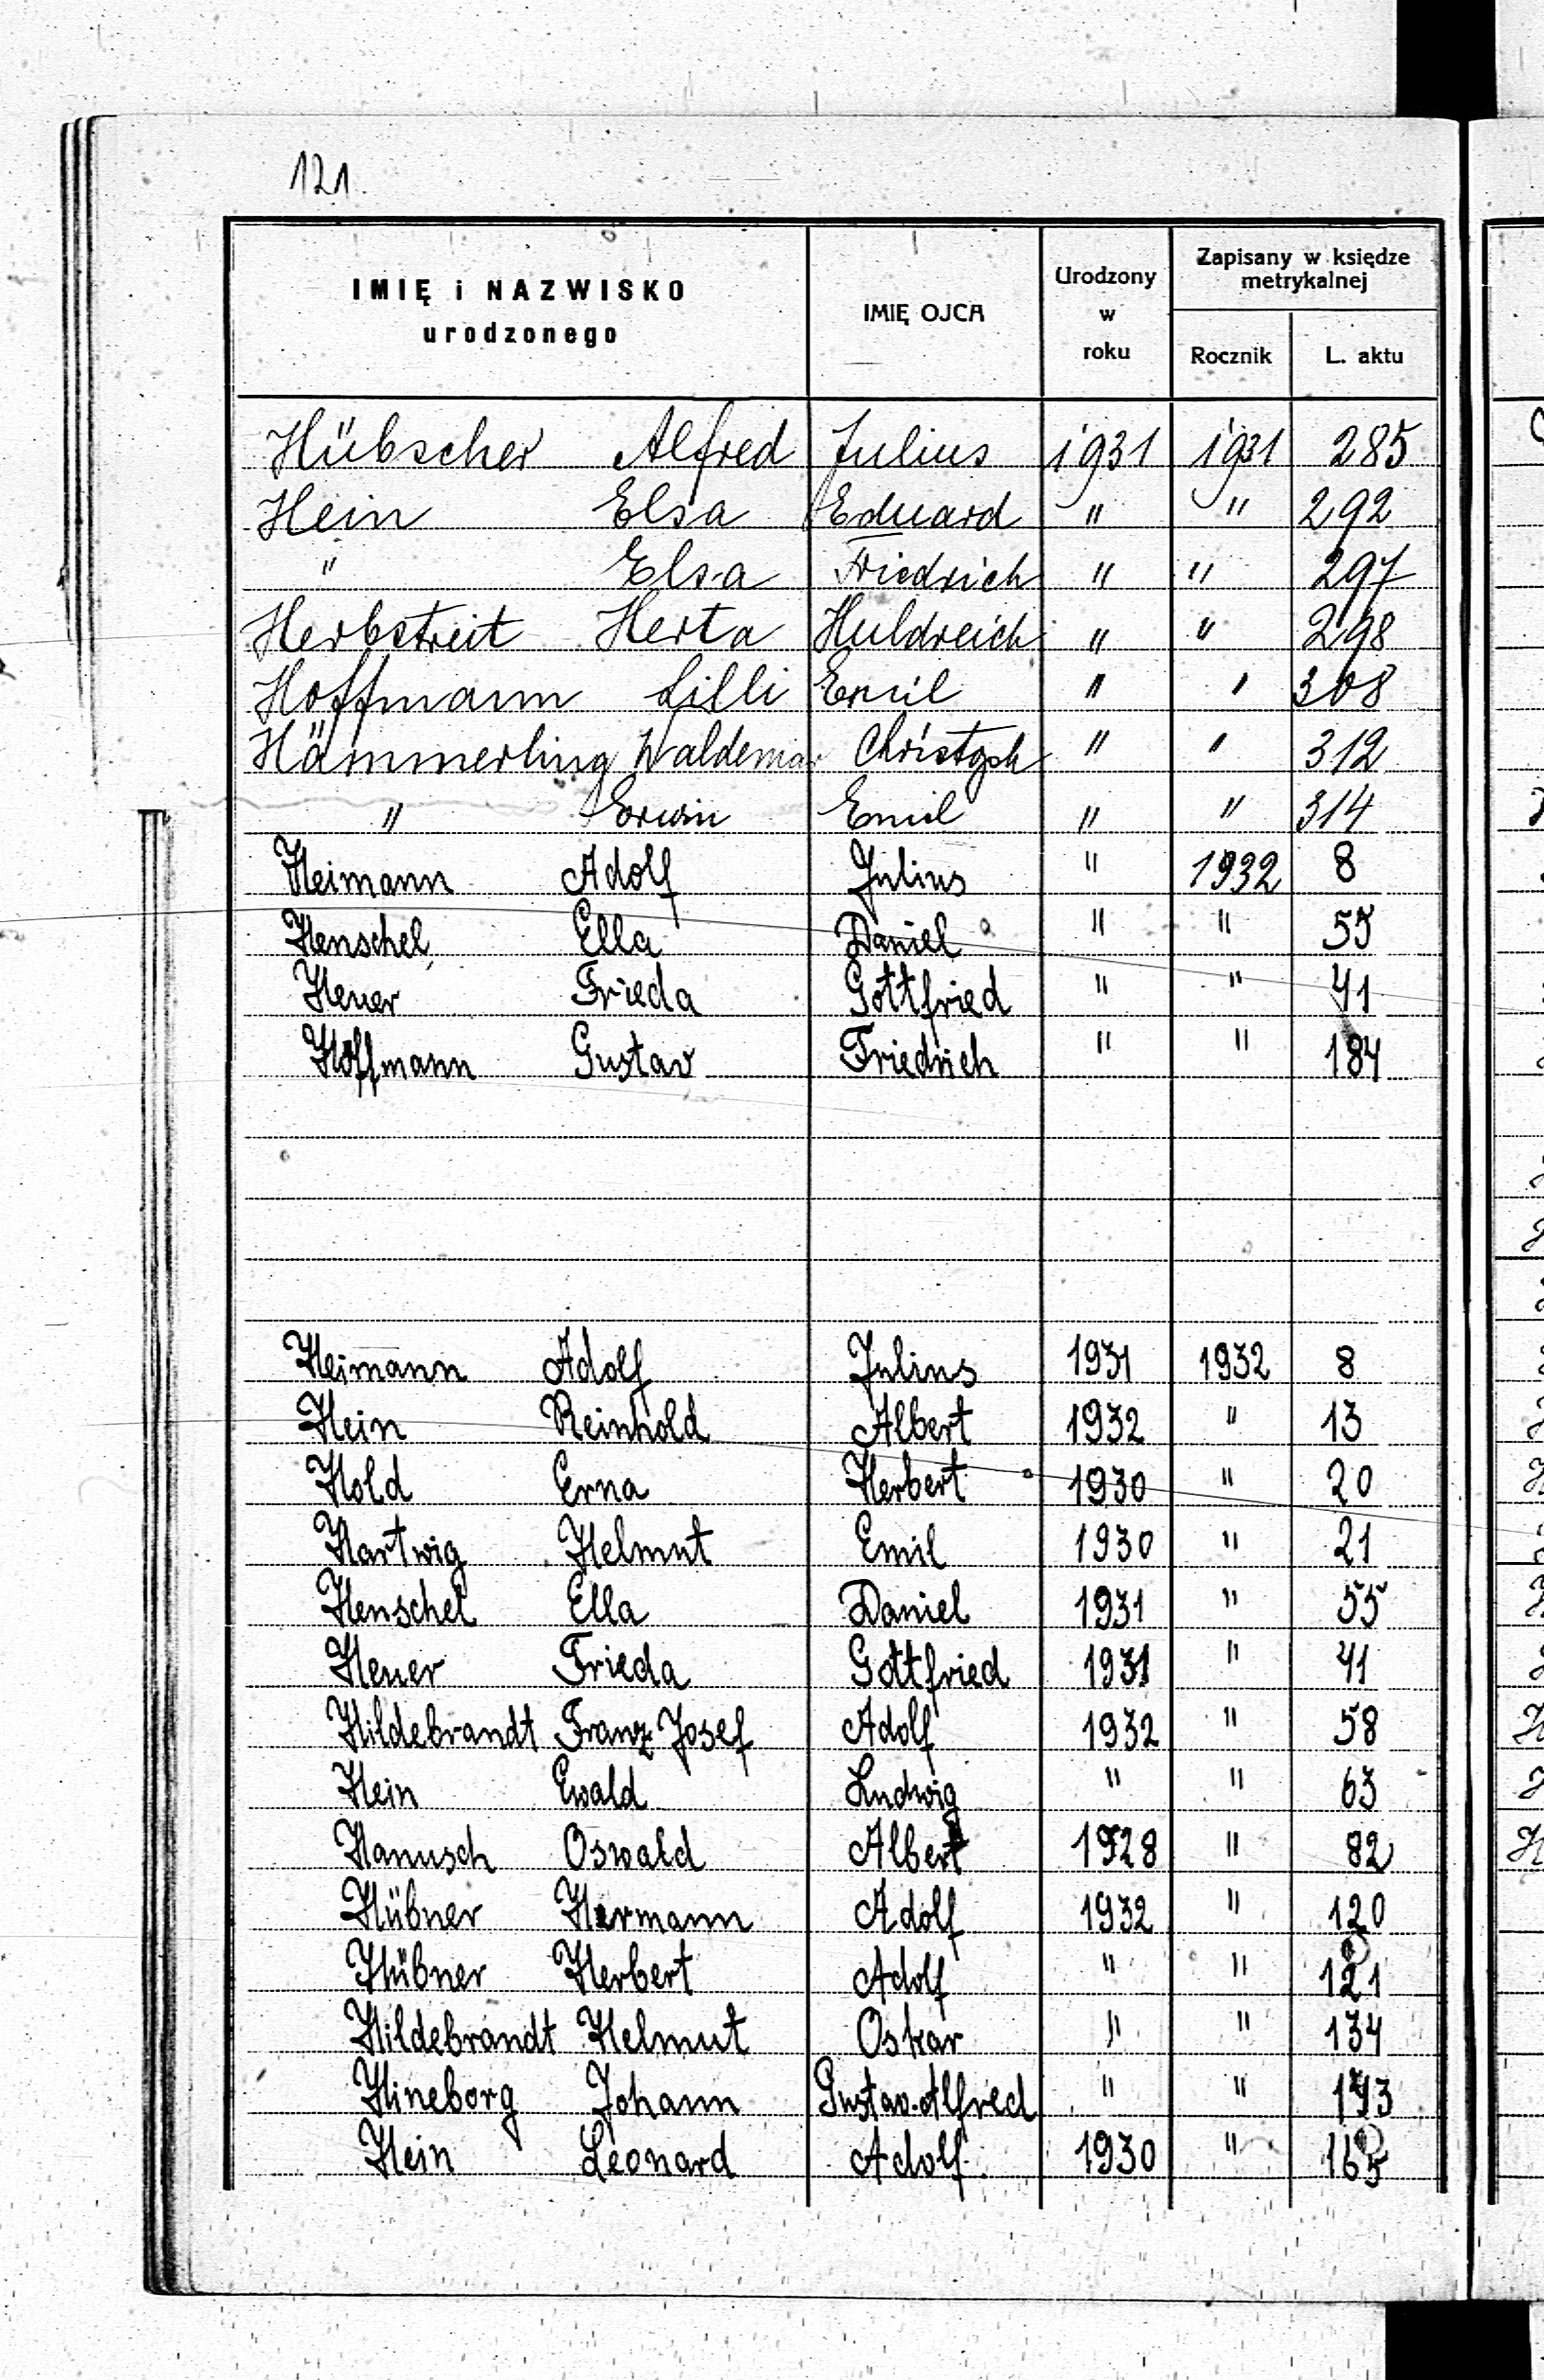 121.
IMIĘ i NAZWISKO urodzonego IMIĘ OJCA Urodzony w roku Zapisany w księdze metrykalnej Rocznik L. aktu
Hübscher Alfred Julius 1931 1931 285
Hein Elsa Eduard " " 292
" Elsa Friedrich " " 297
Herbstreit Herta Huldreich " " 298
Hoffmann Lilli Emil " " 308
Hämmerling Waldemar " " 312
" Erwin Emil " " 314
Heimann Adolf Julius " 1932 8
Henschel Ella Daniel " " 55
Heuer Frieda Gottfried " " 41
Hoffmann Gustav Friedrich " " 184
Heimann Adolf Julius 1931 1932 8
Hein Reinhold Albert 1932 " 13
Hold Erna Herbert 1930 " 20
Hartwig Helmut Emil 1930 " 21
Henschel Ella Daniel 1931 " 55
Heuer Frieda Gottfried 1931 " 41
Hildebrandt Franz Josef Adolf 1932 " 58
Hein Ewald Ludwig " " 63
Hanusch Oswald Albert 1928 " 82
Hübner Hermann Adolf 1932 " 120
Hübner Herbert Adolf " " 121
Hildebrandt Helmut Oskar " " 134
Hineborg Johann Gustav-Alfred " "
Hein Leonard Adolf 1930 " 165